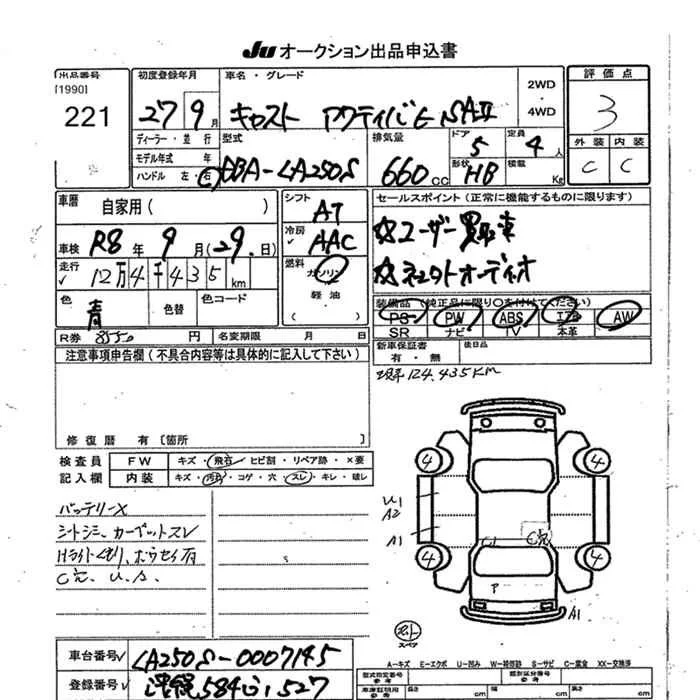 Ju オークション出品申込書
出品番号
[1990]
221
初度登録年月
27 9月
車名・グレード
キャスト アクティバG SAⅡ
2WD
・
4WD
評価点
3
外装 内装
C C
ディーラー・並行
モデル年式 年
ハンドル 左・右
型式
DBA-LA250S
排気量
660cc
ドア
5
形状
HB
定員
4人
積載
Kg
車歴
自家用( )
車検 R8年9月(29日)
走行 12万4千435km
色
青
色替
色コード
シフト
AT
冷房
AAC
燃料
ガソリン
軽油
( )
セールスポイント(正常に機能するものに限ります)
☆ユーザー買取車
☆ネクストオーディオ
装備品(純正品に限り○を付けてください)
PS PW ABS エアB AW
SR ナビ TV 本革
R券 8550円
名変期限 月 日
新車保証書
有・無
後日品
注意事項申告欄(不具合内容等は具体的に記入して下さい)
現車124,435KM
修復歴 有[箇所 ]
検査員
記入欄
FW キズ・飛石・ヒビ割・リペア跡・×要
内装 キズ・汚れ・コゲ・穴・スレ・キレ・破レ
バッテリーX
シートシミ、カーペットスレ
Hライトくもり、ホウセイ有
C穴、U.A.
s
4 4
U1
A2
A1
C1 C穴
4 4
ア
A1
スペア
車台番号 LA250S-0007145
登録番号 沖縄584い1527
A-キズ E-エクボ U-凹み W-補修跡 S-サビ C-腐食 XX-交換跡
型式指定番号
参考
類別区分番号
参考
車庫証明用
参考
長さ cm
幅 cm
高さ cm